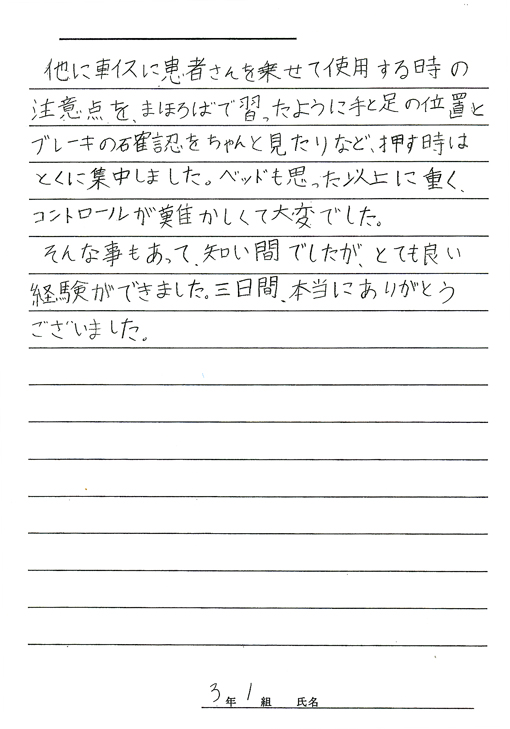 他に車イスに患者さんを乗せて使用する時の
注意点を、まほろばで習ったように手と足の位置と
ブレーキの確認をちゃんと見たりなど、押す時は
とくに集中しました。ベッドも思った以上に重く、
コントロールが難かしくて大変でした。
そんな事もあって、知い間でしたが、とても良い
経験ができました。三日間、本当にありがとう
ございました。
3年1組 氏名